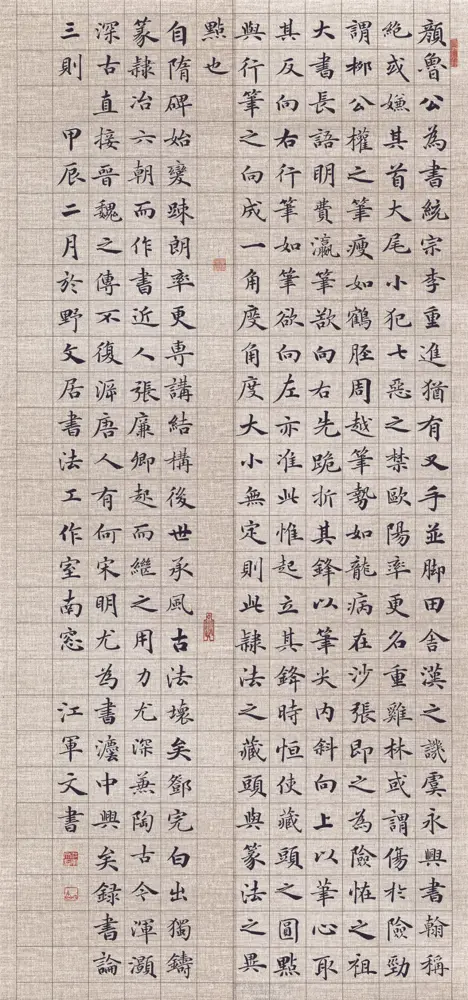 顏魯公為書統宗李重進猶有叉手並脚田舍漢之譏虞永興書翰稱
絶或嫌其首大尾小犯七惡之禁歐陽率更名重雞林或謂傷於險勁
謂柳公權之筆瘦如鶴脛周越筆勢如龍病在沙張即之為險恠之祖
大書長語明費瀛筆欲向右先跪折其鋒以筆尖内斜向上以筆心取
其反向右行筆如筆欲向左亦准此惟起立其鋒時恒使藏頭之圓點
與行筆之向成一角度角度大小無定則此隸法之藏頭與篆法之異
點也
自隋碑始變踈朗率更専講結構後世承風古法壞矣鄧完白出獨鑄
篆隸冶六朝而作書近人張廉卿起而繼之用力尤深兼陶古今渾灝
深古直接晉魏之傳不復溯唐人有何宋明尤為書灋中興矣録書論
三則 甲辰二月於野文居書法工作室南窓 江軍文書